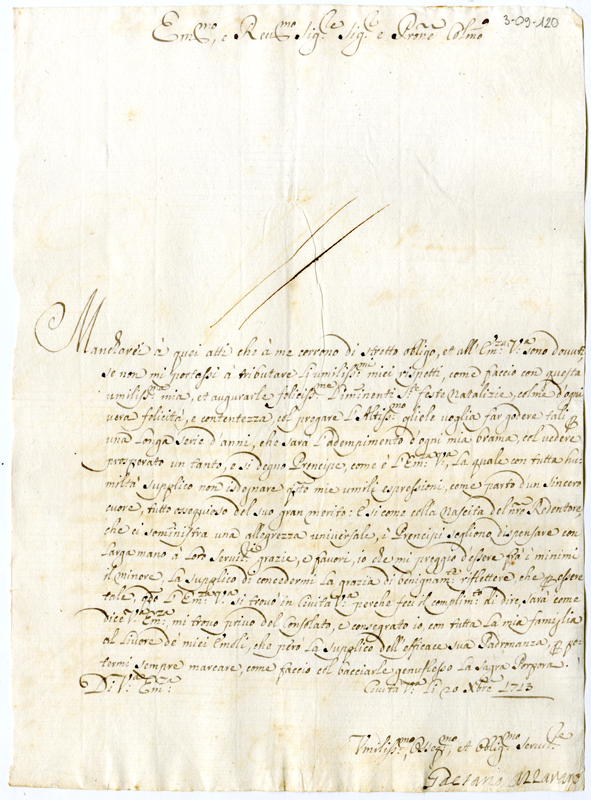 3-09-120
Em.mo, e Reu.mo Sig.re Sig.r e Prone Col.mo
Mancharei à quei atti che à me corrono di stretto obligo, et all'Em.za V.a sono dovuti,
se non mi portassi à tributare L'umiliss.mi miei rispetti, come faccio con questa
umiliss.ma mia, et augurarle feliciss.me L'iminenti S.te feste Natalizie, colme d'ogni
vera felicità, e contentezza, col pregare L'Altiss.mo gliele voglia far godere tali p
una Longa serie d'anni, che sarà L'adempimento d'ogni mia brama, col vedere
prosperato un tanto, e si degno Prencipe, come è L'Em.za V.a, La quale con tutta hu-
miltà supplico non isdegnare q.ste mie umile espressioni, come parto d'un sincero
cuore, tutto ossequioso del suo gran merito: E si come colla Nascita del n.ro Redentore,
che ci soministra una allegrezza universale, i Prencipi sogliono dispensare con
Larga mano à Loro Servit.ri grazie, e favori, io che mi preggio d'essere frà i minimi
il minore, La supplico di concedermi La grazia di benignam.te riflettere, che p essere
tale, q.do L'Em.za V.a si trovò in Civita V.a perche feci il complim.to di dire, sarà come
dice V.a Em.za, mi trovo privo del Consolato, e consegrato io, con tutta La mia famiglia
al Livore de miei Emoli, che però La supplico dell'efficace sua Padronanza, p po-
termi sempre marcare, come faccio col bacciarle genuflesso La Sagra Porpora.
Di V.a Em.za
Civita V.a Li 20 Xbre 1713
Umiliss.mo, Osseq.mo, et Oblig.mo Servit.re
Gaetano